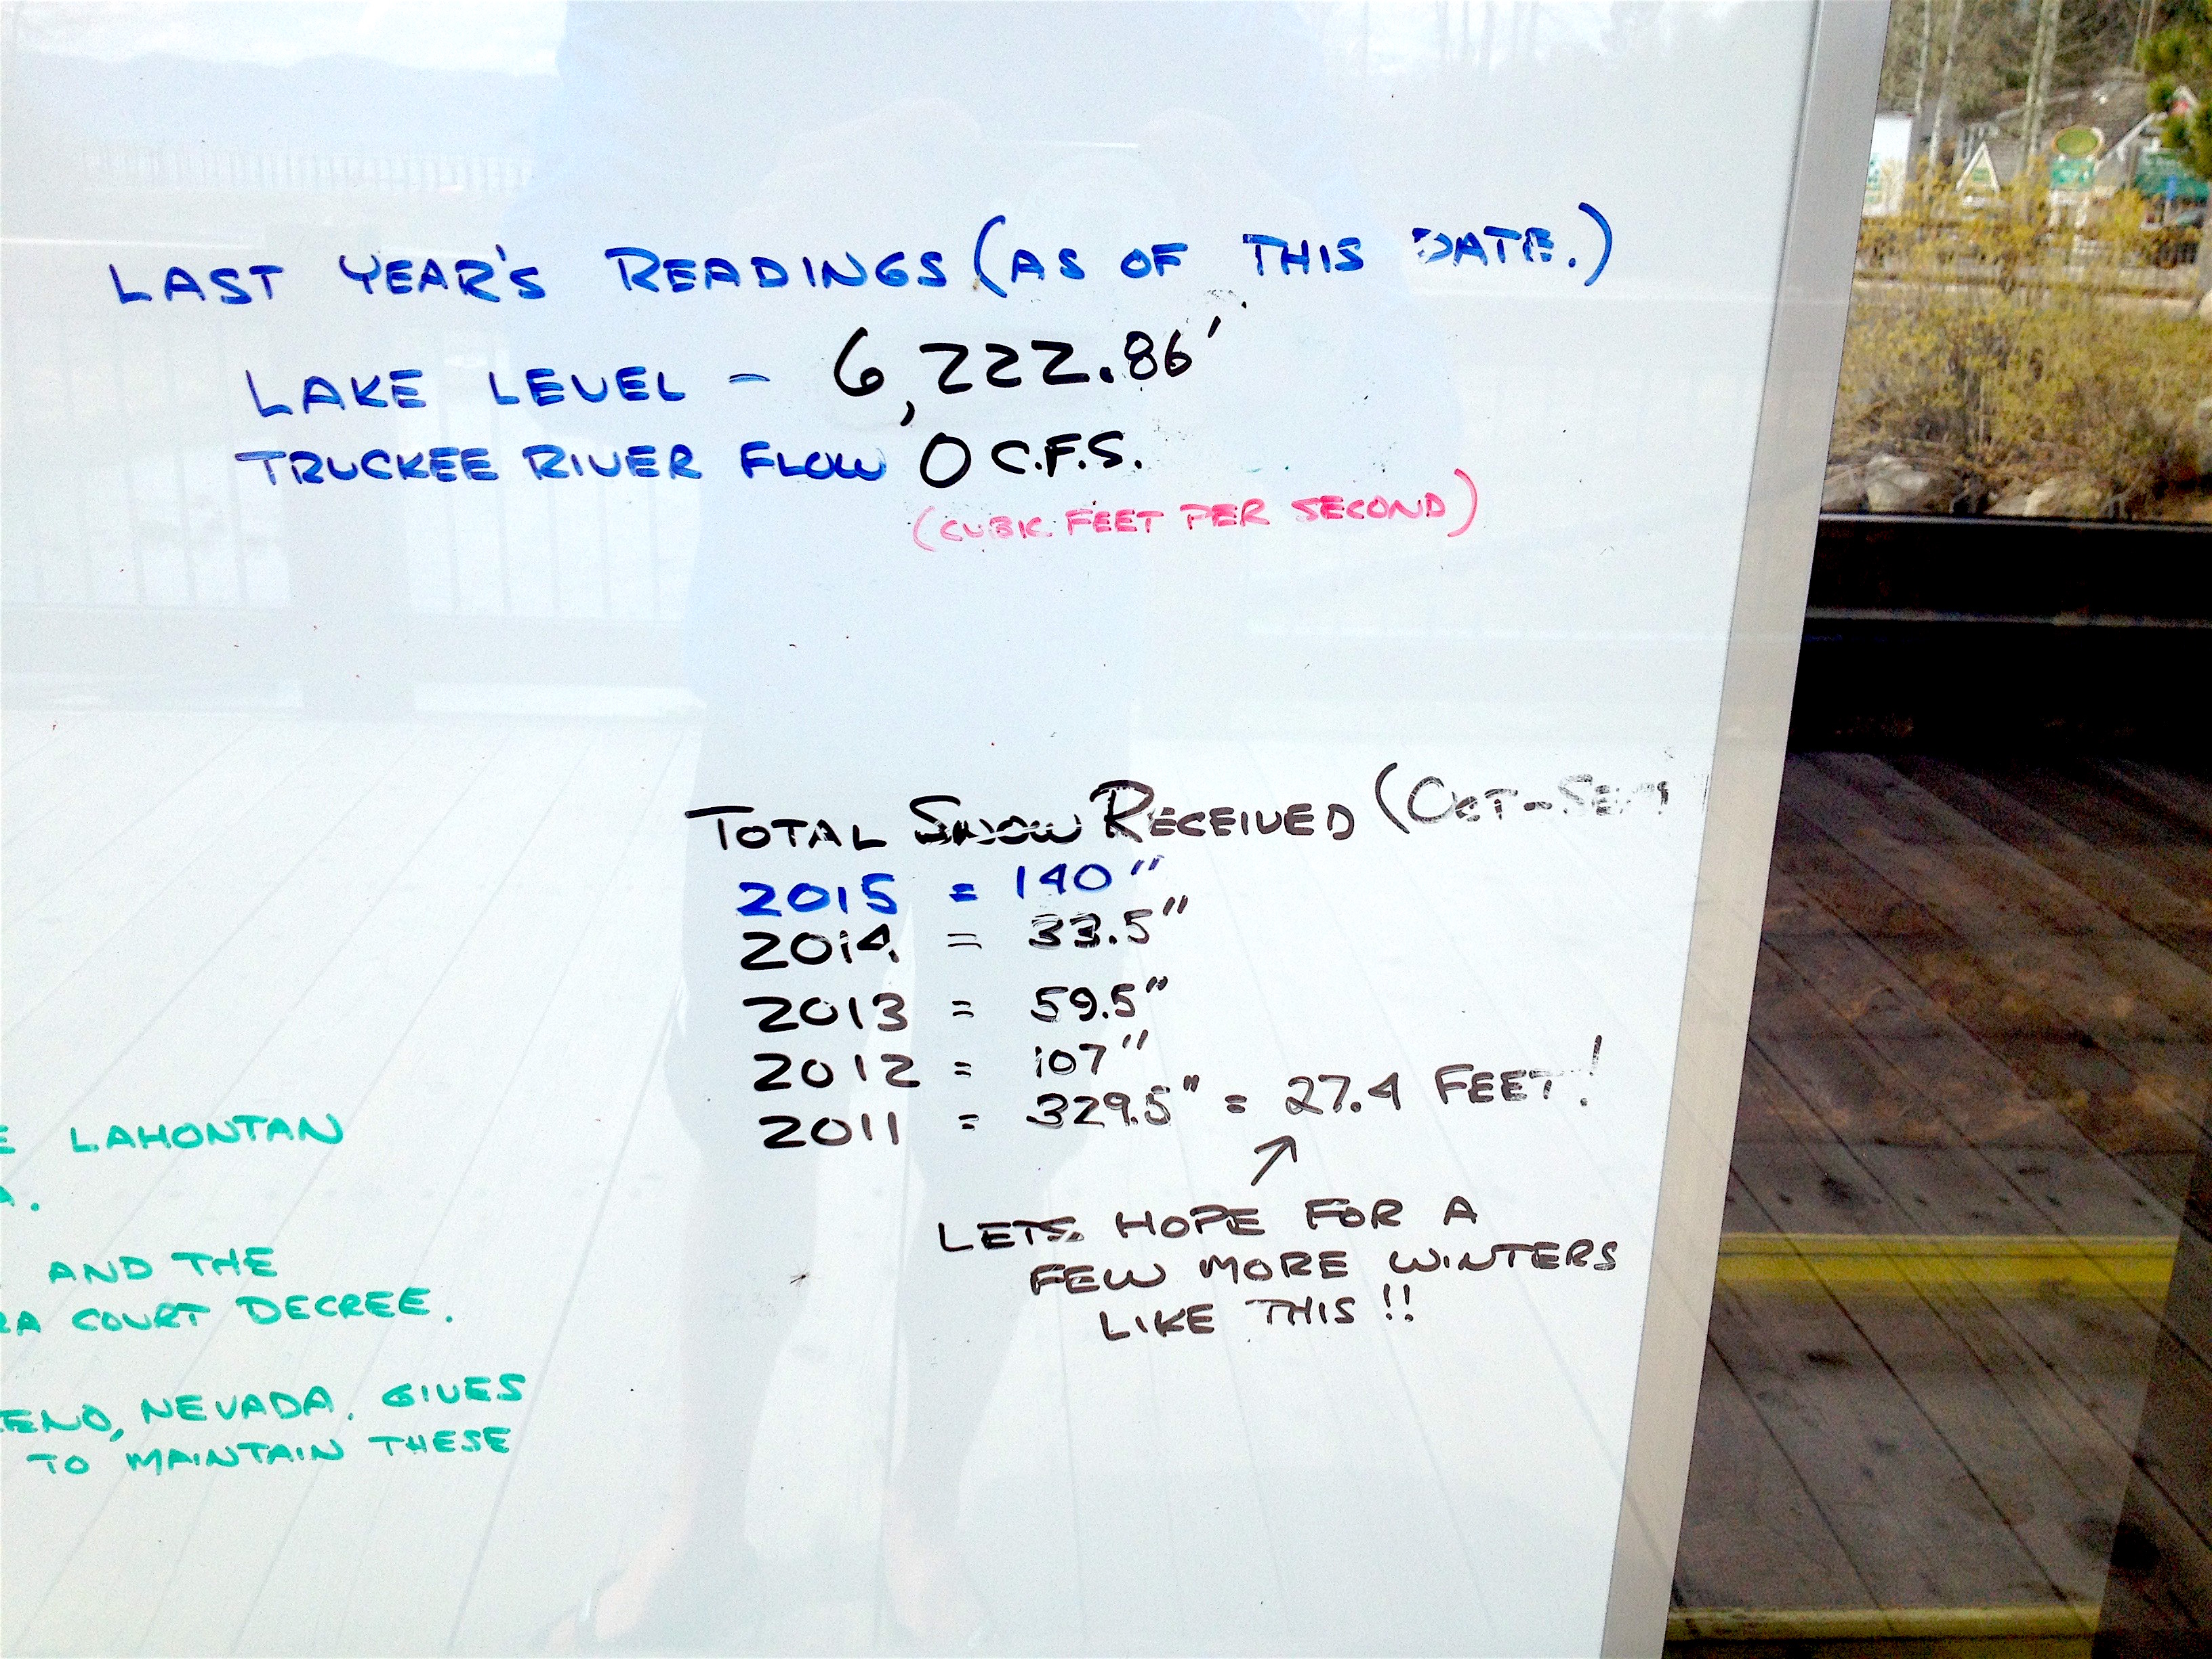 LAST YEAR'S READINGS (AS OF THIS DATE.)
LAKE LEVEL - 6,222.86'
TRUCKEE RIVER FLOW 0 C.F.S.
(CUBIC FEET PER SECOND)
TOTAL SNOW RECEIVED (OCT-SEPT
2015 = 140"
2014 = 33.5"
2013 = 59.5"
2012 = 107"
2011 = 329.5" = 27.4 FEET!
LETS HOPE FOR A
FEW MORE WINTERS
LIKE THIS!!
LAHONTAN
AND THE
COURT DECREE.
NEVADA. GIVES
TO MAINTAIN THESE